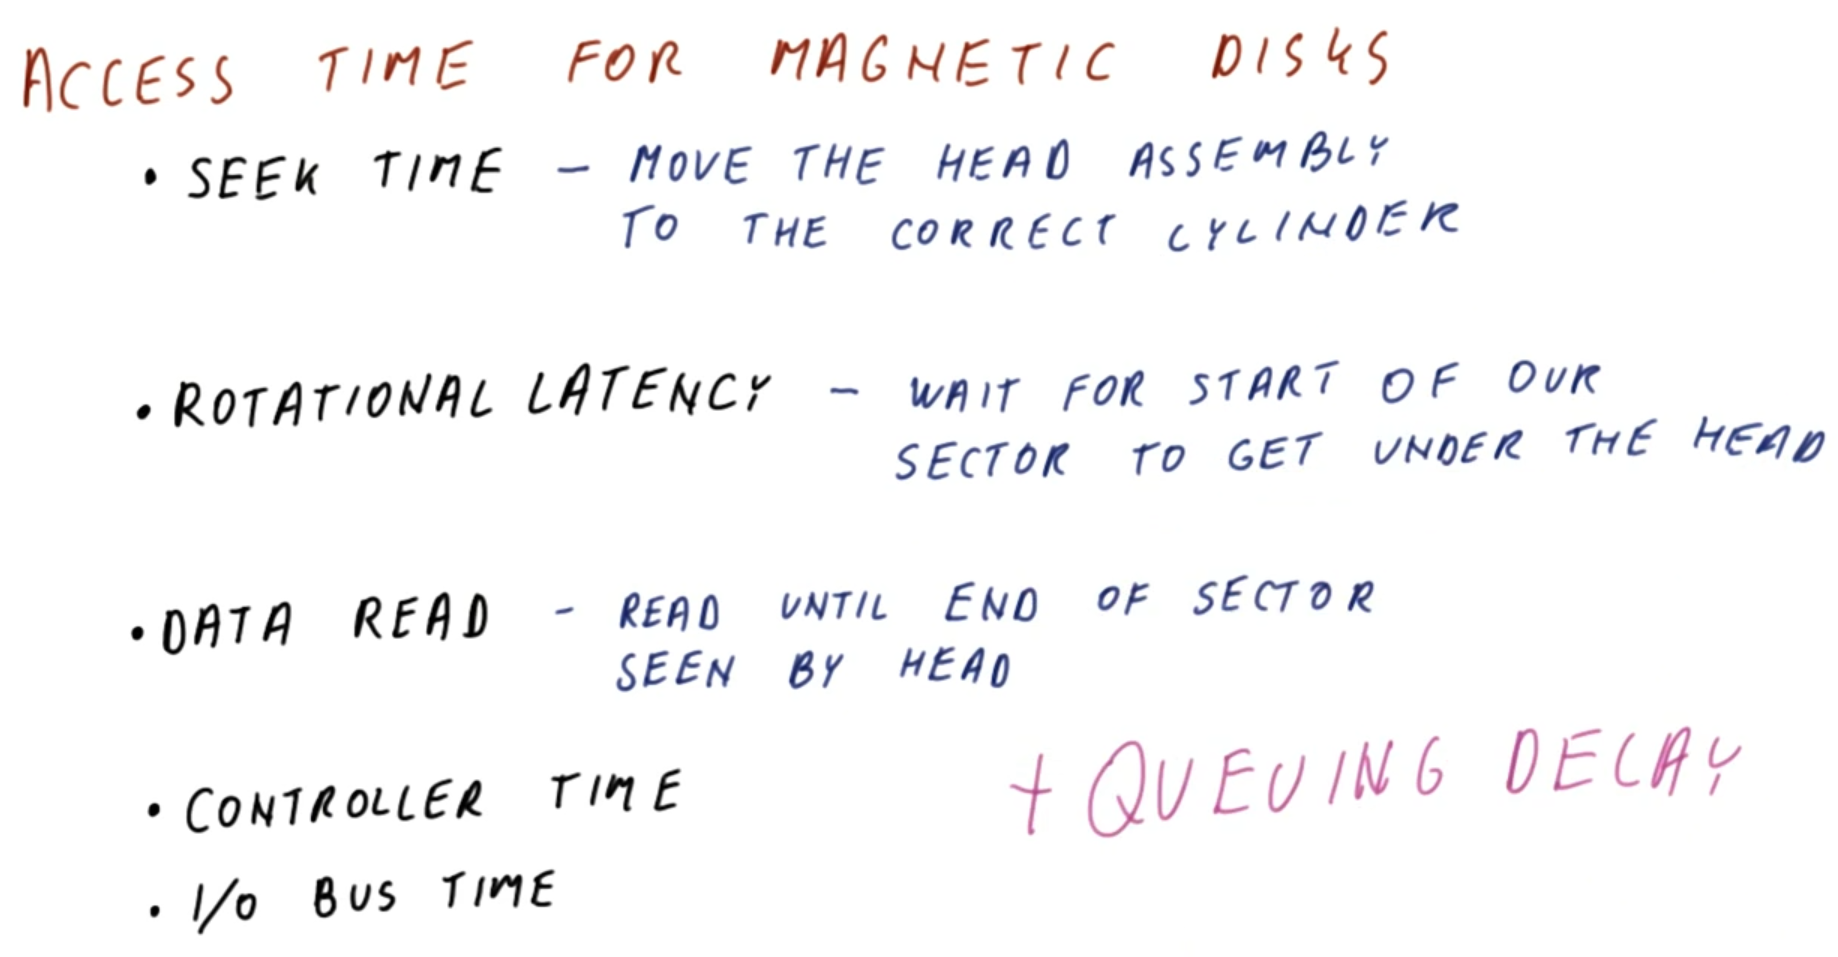 ACCESS TIME FOR MAGNETIC DISKS
• SEEK TIME – MOVE THE HEAD ASSEMBLY
TO THE CORRECT CYLINDER
• ROTATIONAL LATENCY – WAIT FOR START OF OUR
SECTOR TO GET UNDER THE HEAD
• DATA READ - READ UNTIL END OF SECTOR
SEEN BY HEAD
• CONTROLLER TIME
+ QUEUING DELAY
• I/O BUS TIME